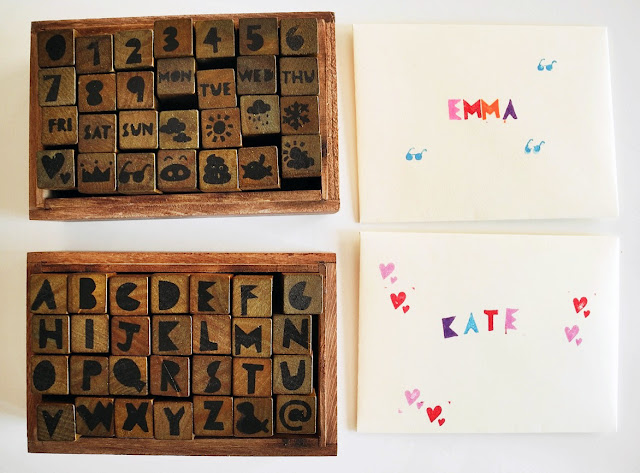 0 1 2 3 4 5 6
7 8 9 MON TUE WED THU
FRI SAT SUN
A B C D E F G
H I J K L M N
O P Q R S T U
V W X Y Z & @
EMMA
KATE